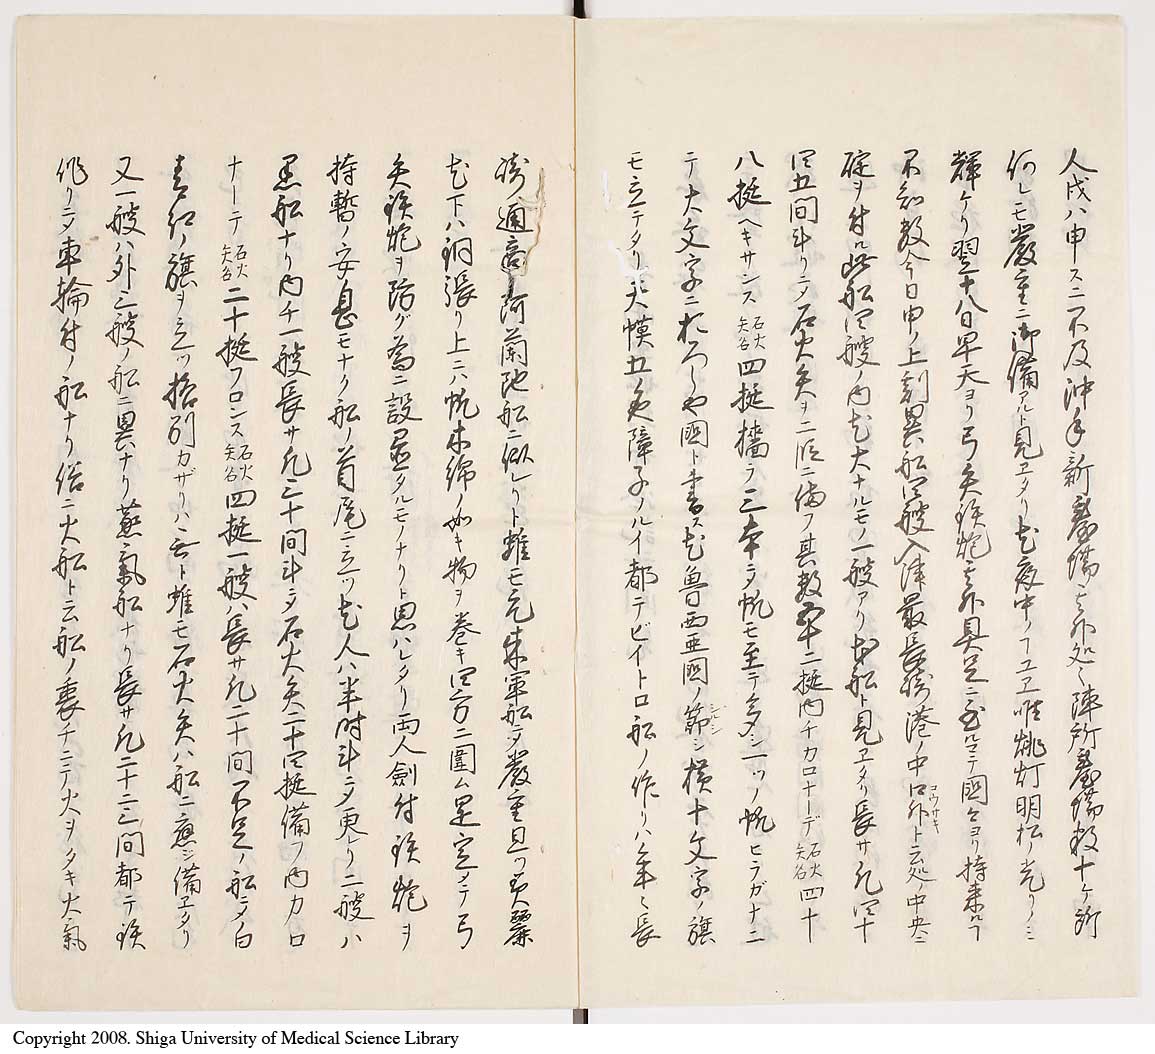 人戌ハ申スニ不及沖手新臺場其外処々陣所臺場数十ヶ所
何レモ嚴重ニ御備アルト見エタリ尤夜中ノヿユエ唯桃灯明松ノ光リノミ
輝ケリ翌十八日早天ヨリ弓矢鉄炮其外具足ニ至ルマテ國々ヨリ持来ルヿ
不知数今日申ノ上刻異船四艘入津最長崎港ノ中口外ト云処ノ中央ニ
コウサキ
碇ヲ付ル此船四艘ノ内尤大ナルモノ一艘アリ本船ト見エタリ長サ凡四十
四五間斗リニ〆石火矢ヲ二段ニ備フ其数五十二挺内チカロナーデ石火矢名四十
八挺ヘキサンス石火矢名四挺檣ラ三本ニ〆帆モ至テ多シ一ツノ帆ヒラガナニ
テ大文字ニおろしや國ト書ス尤魯西亜國ノ節シ横十文字ノ旗
シルシ
モ立テタリ天幙五色障子ノルイ都テビイトロ船ノ作リハ年々長
崎通商ノ阿蘭陀船ニ似レリト雖モ元来軍船ニ〆嚴重且ツ美麗
尤下ハ銅張リ上ニハ帆木綿ノ如キ物ヲ巻キ四方ニ圍ム是定メテ弓
矢鉄炮ヲ防グ為ニ設置タルモノナリト思ハレタリ両人劍付鉄炮ヲ
持暫ノ安息モナク船ノ首尾ニ立ツ尤人ハ半時斗ニ〆更レリ二艘ハ
黒船ナリ内チ一艘長サ凡三十間斗ニ〆石火矢二十四挺備フ内カロ
ナーテ石火矢名二十挺フロンス石火矢名四挺一艘ハ長サ凡二十間不足ノ船ニ〆白
青紅ノ旗ヲ立ツ格別カザリハ無ト雖モ石火矢ハ船ニ應ジ備エタリ
又一艘ハ外三艘ノ船ニ異ナリ蒸氣船ナリ長サ凡二十二三間都テ鉄
作リニ〆車輪付ノ船ナリ俗ニ火船ト云船ノ裏チニテ火ヲタキ大氣
Copyright 2008. Shiga University of Medical Science Library